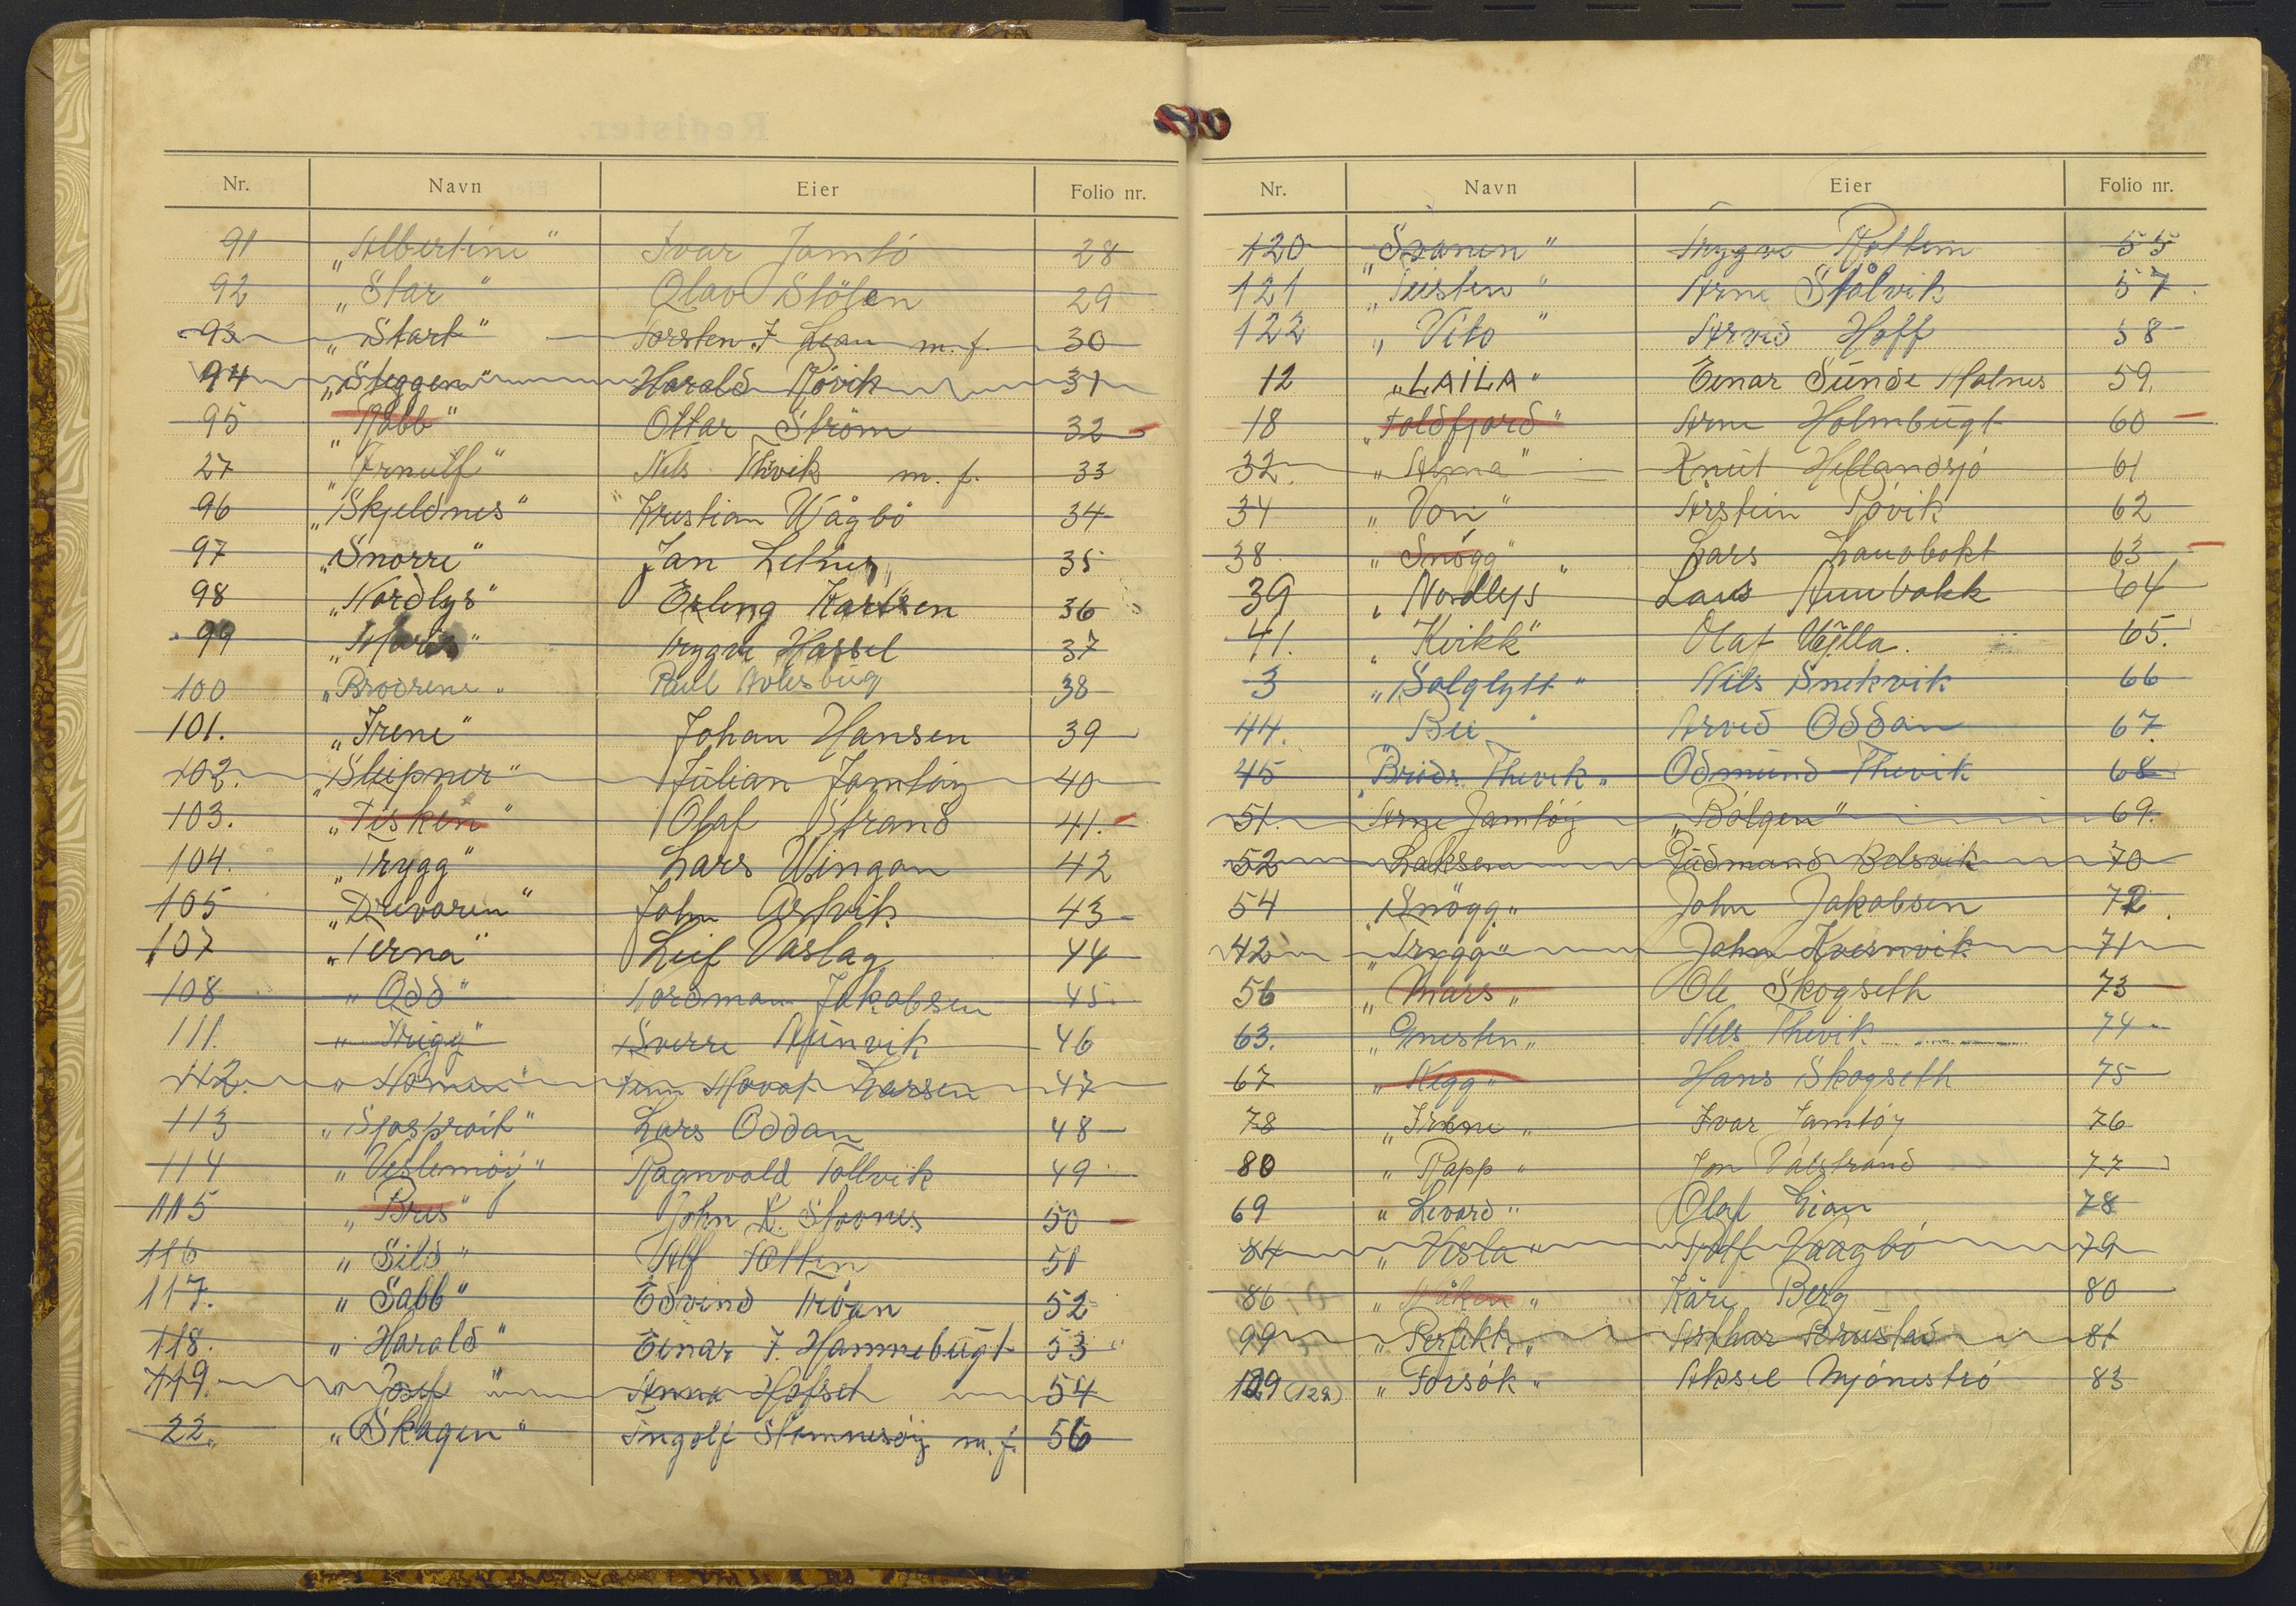 Nr. Navn Eier Folio nr.
91 „Albertine" Ivar Jamtö 28
92 „Star" Olav Stölen 29
93 „Start" Torsten J. Lian m. f. 30
94 „Steggen" Harald Rövik 31
95 „Rabb" Ottar Ström 32
27 „Arnulf" Nils Thevik m. f. 33
96 „Skjeldnes" Kristian Vågbö 34
97 „Snorre" Jan Letnes 35
98 „Nordlys" Erling Karlsen 36
99 Trygve Hassel 37
100 „Brödrene" Paul 38
101. „Irene" Johan Hansen 39
102. „Sleipner" Julian Jamtöy 40
103. „Fisken" Olaf Strand 41.
104. „Trygg" Lars Vingan 42
105 „Drivaren" John 43
107 „Terna" Leif Vaslag 44
108 „Odd" Tordmann Jakobsen 45.
111. Sverre 46
112. Larsen 47
113 „Sjøsprøit" Lars Oddan 48
114 „Veslemöy" Ragnvald Tollvik 49
115 „Bris" John K. Stavnes 50
116 „Sild" Alf 51
117. „Sabb" Edvind Troan 52
118. „Harald" Einar J. Hammebugt 53
119. „Josef" Anna Hofset 54
22. „Skagen" Ingolf Stamnesöy m. f. 56
Nr. Navn Eier Folio nr.
120 „Svanen" Trygve Rottem 55
121 „Teisten" Arne Stålvik 57
122 „Vito" Arvid Hoff 58
12 „LAILA" Einar Sunde Malnes 59.
18 „Foldfjord" Arne Holmbugt 60
32. „Alma" Knut Hellandsjö 61
34 „Von" Arstein Rövik 62
38. „Snögg" Lars 63
39 „Nordlys" Lars 64
41. „Kvikk" Olaf 65.
3 „Solglytt" Nils Snekvik 66
44. Arvid Oddan 67.
45 „Brödr. Thevik" Odmund Thevik 68
51. Arne Jamtöy „Bölgen" 69.
52 Laksen Gudmund Belsvik 70
54 „Snögg" John Jakobsen 72.
42 „Trygg" John Kvernvik 71
56 „Mars" Ole Skogseth 73
63. „Gnisten" Nils Thevik 74
67 „Kegg" Hans Skogseth 75
78 „Irene" Ivar Jamtöy 76
80 „Rapp" Jon Valstrand 77
69 „Livard" Olaf Eian 78
84 „Vesla" Rolf Vaagbö 79
86 „Måken" Kåre Berg 80
99 „Perfekt" Arthur 81
129 (128) „Forsök" Aksel Mjöneströ 83